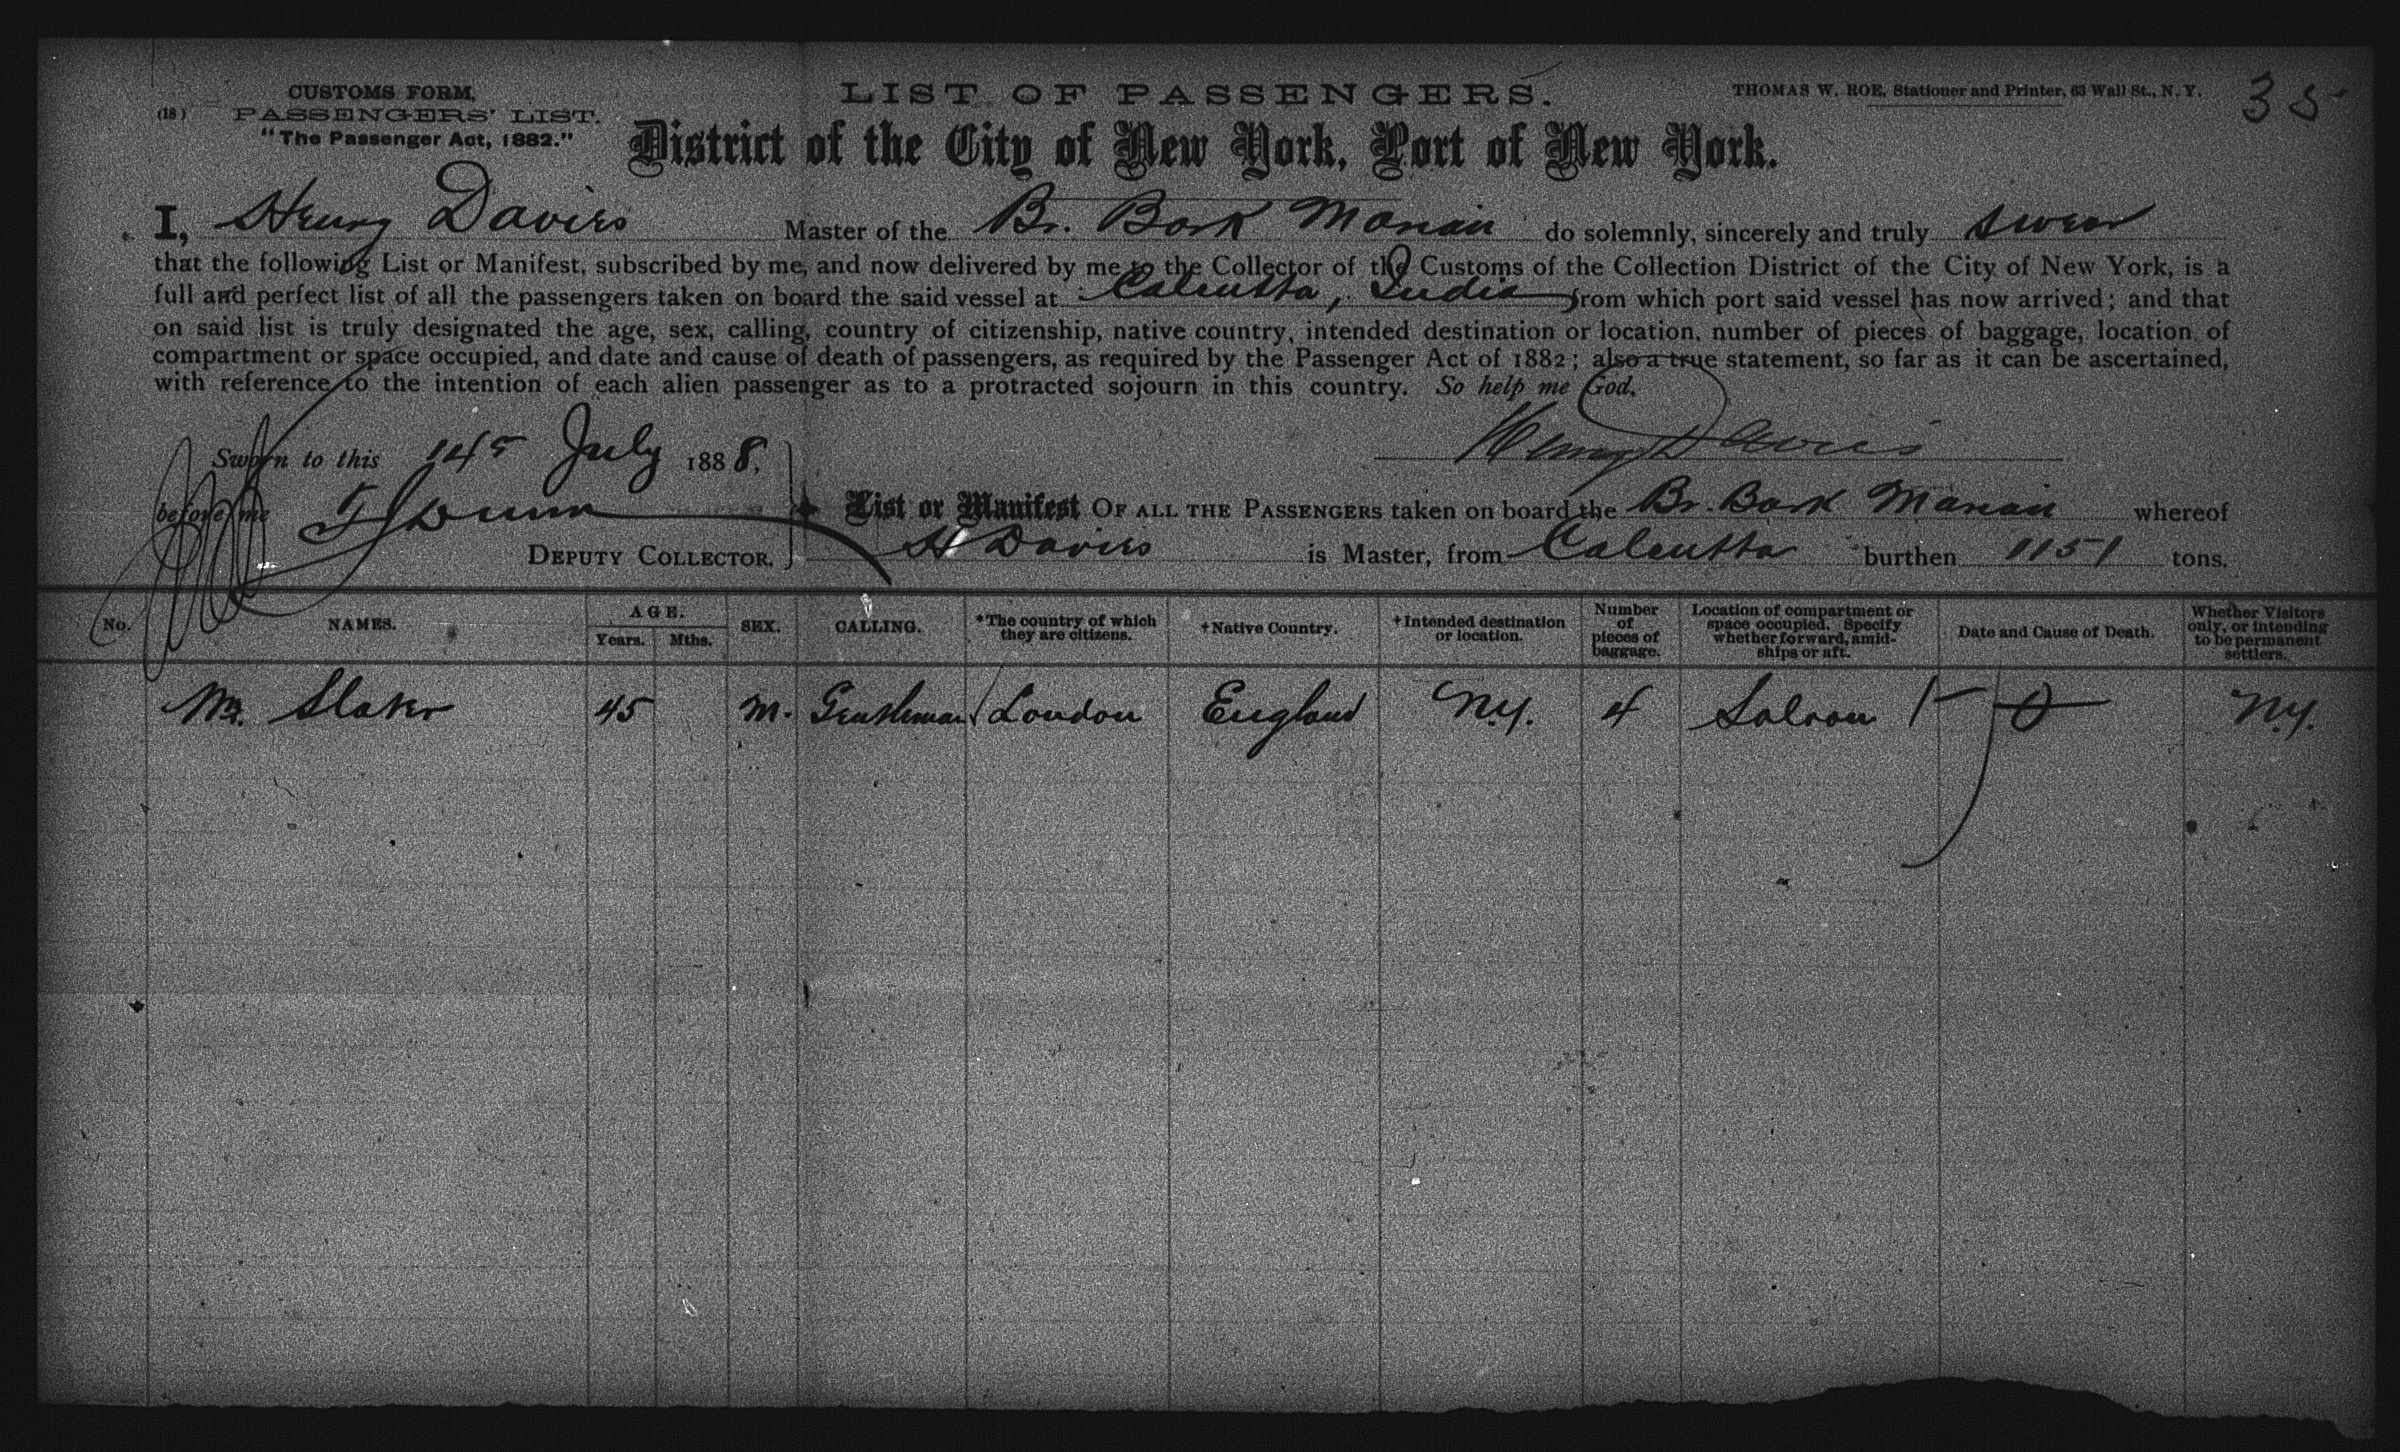 CUSTOMS FORM,
(18) PASSENGERS' LIST.
"The Passenger Act, 1882."
LIST OF PASSENGERS.
THOMAS W. ROE, Stationer and Printer, 63 Wall St., N. Y.
35
District of the City of New York, Port of New York.
I, Henry Davies Master of the Br. Bark do solemnly, sincerely and truly swear
that the following List or Manifest, subscribed by me, and now delivered by me to the Collector of the Customs of the Collection District of the City of New York, is a
full and perfect list of all the passengers taken on board the said vessel at Calcutta, India from which port said vessel has now arrived; and that
on said list is truly designated the age, sex, calling, country of citizenship, native country, intended destination or location, number of pieces of baggage, location of
compartment or space occupied, and date and cause of death of passengers, as required by the Passenger Act of 1882; also a true statement, so far as it can be ascertained,
with reference to the intention of each alien passenger as to a protracted sojourn in this country. So help me God.
Henry Davies
Sworn to this 14 July 1888,
before me
DEPUTY COLLECTOR.
List or Manifest OF ALL THE PASSENGERS taken on board the Br. Bark whereof
H Davies is Master, from Calcutta burthen 1151 tons.
No.
NAMES.
AGE.
Years. Mths.
SEX.
CALLING.
*The country of which
they are citizens.
†Native Country.
†Intended destination
or location.
Number
of
pieces of
baggage.
Location of compartment or
space occupied. Specify
whether forward, amid-
ships or aft.
Date and Cause of Death.
Whether Visitors
only, or intending
to be permanent
settlers.
Mr. Slaker 45 M. Gentleman London England N.Y. 4 Saloon N.Y.